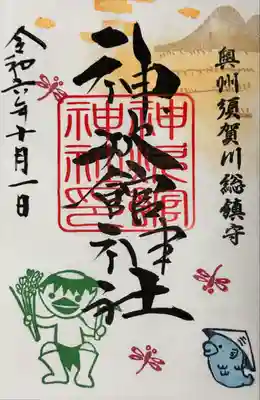 奥州須賀川総鎮守
神炊館神社
神炊館
神社印
令和六年十月一日